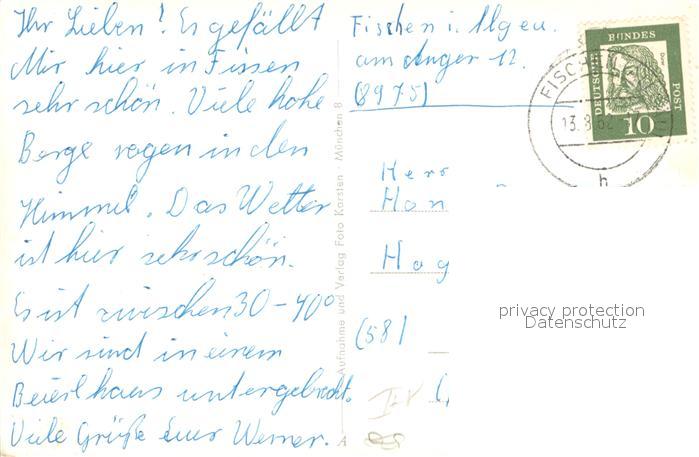 Ihr Lieben! Es gefällt
Mir hier in Fissen
sehr schön. Viele hohe
Berge ragen in den
Himmel. Das Wetter
ist hier sehr schön.
Es ist zwischen 30-40°
Wir sind in einem
untergebracht.
Viele Grüße Euer Werner.
Aufnahme und Verlag Foto Karsten · München 8
A
Fischen i. Allgeu.
am Anger 12.
(8975)
Herr
Han
Hag
(58)
DEUTSCHE BUNDES POST
10
FISCHEN
13.8.62
h
privacy protection
Datenschutz